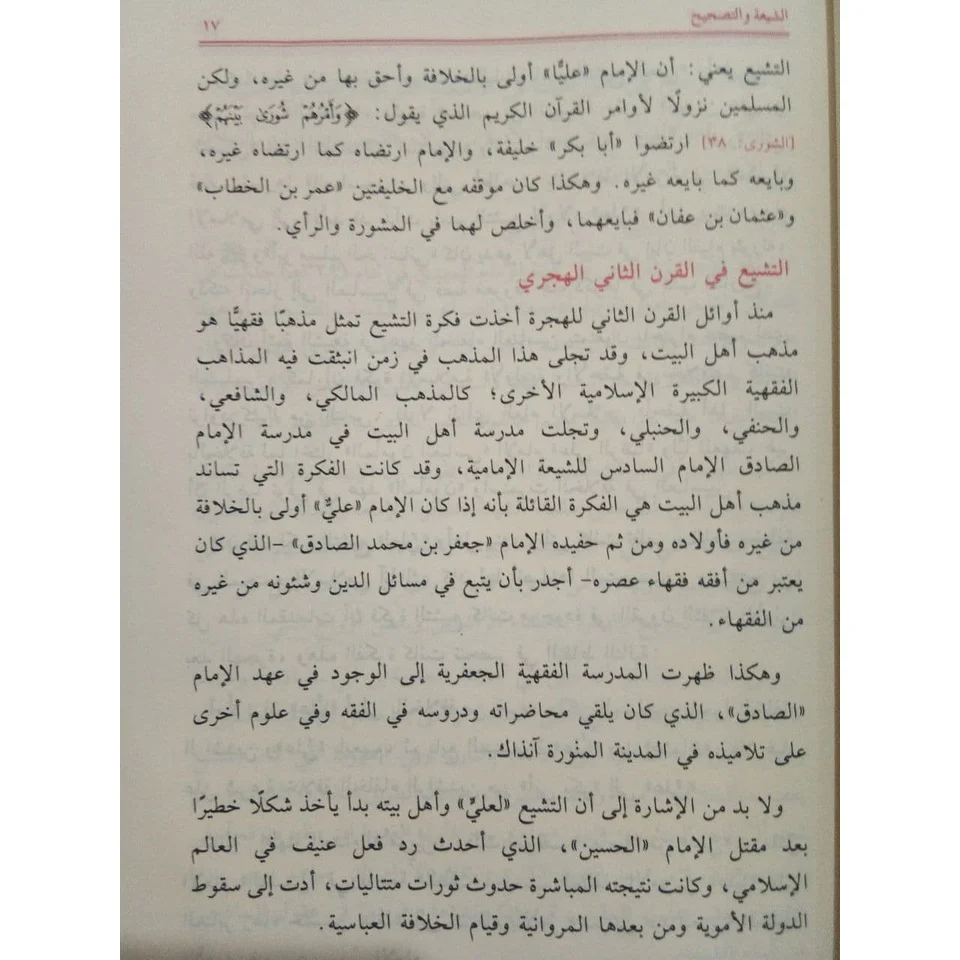 الشيعة والتصحيح ١٧
التشيع يعني: أن الإمام «عليًّا» أولى بالخلافة وأحق بها من غيره، ولكن
المسلمين نزولًا لأوامر القرآن الكريم الذي يقول: ﴿وَأَمْرُهُمْ شُورَىٰ بَيْنَهُمْ﴾
[الشورى: ٣٨] ارتضوا «أبا بكر» خليفة، والإمام ارتضاه كما ارتضاه غيره،
وبايعه كما بايعه غيره. وهكذا كان موقفه مع الخليفتين «عمر بن الخطاب»
و«عثمان بن عفان» فبايعهما، وأخلص لهما في المشورة والرأي.
التشيع في القرن الثاني الهجري
منذ أوائل القرن الثاني للهجرة أخذت فكرة التشيع تمثل مذهبًا فقهيًّا هو
مذهب أهل البيت، وقد تجلى هذا المذهب في زمن انبثقت فيه المذاهب
الفقهية الكبيرة الإسلامية الأخرى؛ كالمذهب المالكي، والشافعي،
والحنفي، والحنبلي، وتجلت مدرسة أهل البيت في مدرسة الإمام
الصادق الإمام السادس للشيعة الإمامية، وقد كانت الفكرة التي تساند
مذهب أهل البيت هي الفكرة القائلة بأنه إذا كان الإمام «عليٌّ» أولى بالخلافة
من غيره فأولاده ومن ثم حفيده الإمام «جعفر بن محمد الصادق» -الذي كان
يعتبر من أفقه فقهاء عصره- أجدر بأن يتبع في مسائل الدين وشئونه من غيره
من الفقهاء.
وهكذا ظهرت المدرسة الفقهية الجعفرية إلى الوجود في عهد الإمام
«الصادق»، الذي كان يلقي محاضراته ودروسه في الفقه وفي علوم أخرى
على تلاميذه في المدينة المنورة آنذاك.
ولا بد من الإشارة إلى أن التشيع «لعليٍّ» وأهل بيته بدأ يأخذ شكلًا خطيرًا
بعد مقتل الإمام «الحسين»، الذي أحدث رد فعل عنيف في العالم
الإسلامي، وكانت نتيجته المباشرة حدوث ثورات متتاليات، أدت إلى سقوط
الدولة الأموية ومن بعدها المروانية وقيام الخلافة العباسية.